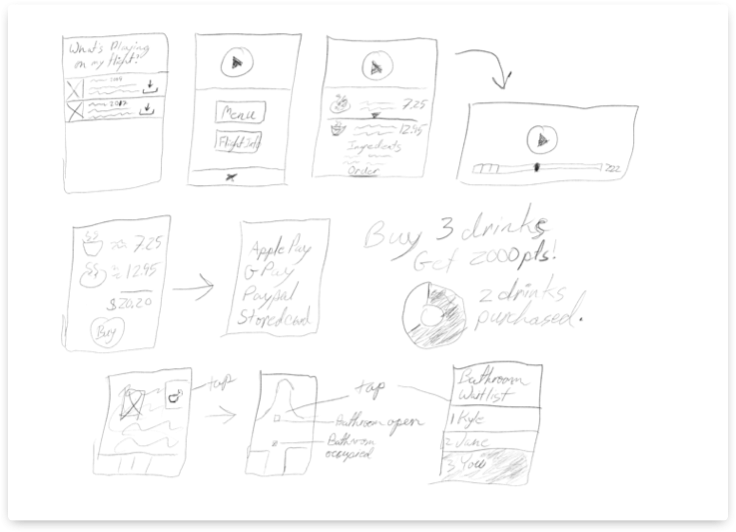 What's Playing
on my flight?
2017
Menu
Flight Info
7.25
12.95
Ingredients
Order
7.25
12.95
$20.20
Buy
Apple Pay
G Pay
Paypal
Stored card
Buy 3 drinks
Get 2000pts!
2 drinks
purchased.
tap
tap
Bathroom open
Bathroom
occupied
Bathroom
Waitlist
1 Kyle
2 Jane
3 You